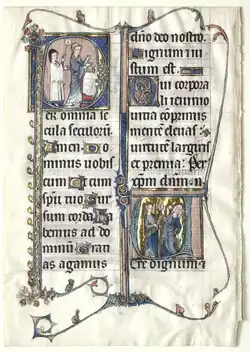 et omnia se
cula seculorū
Amen Do
minus vobis
cum Et cum
spū tuo Sur
sum corda
bemus ad do
minū Grati
as agamus
dn̄o deo nostro.
Dignum ⁊ iu
stum est.
Qui corpora
li ieiunio
uitia cōprimis
mentē eleuas
uirtutē largiris
et premia: Per
xp̄m dn̄m
ere dignum ⁊